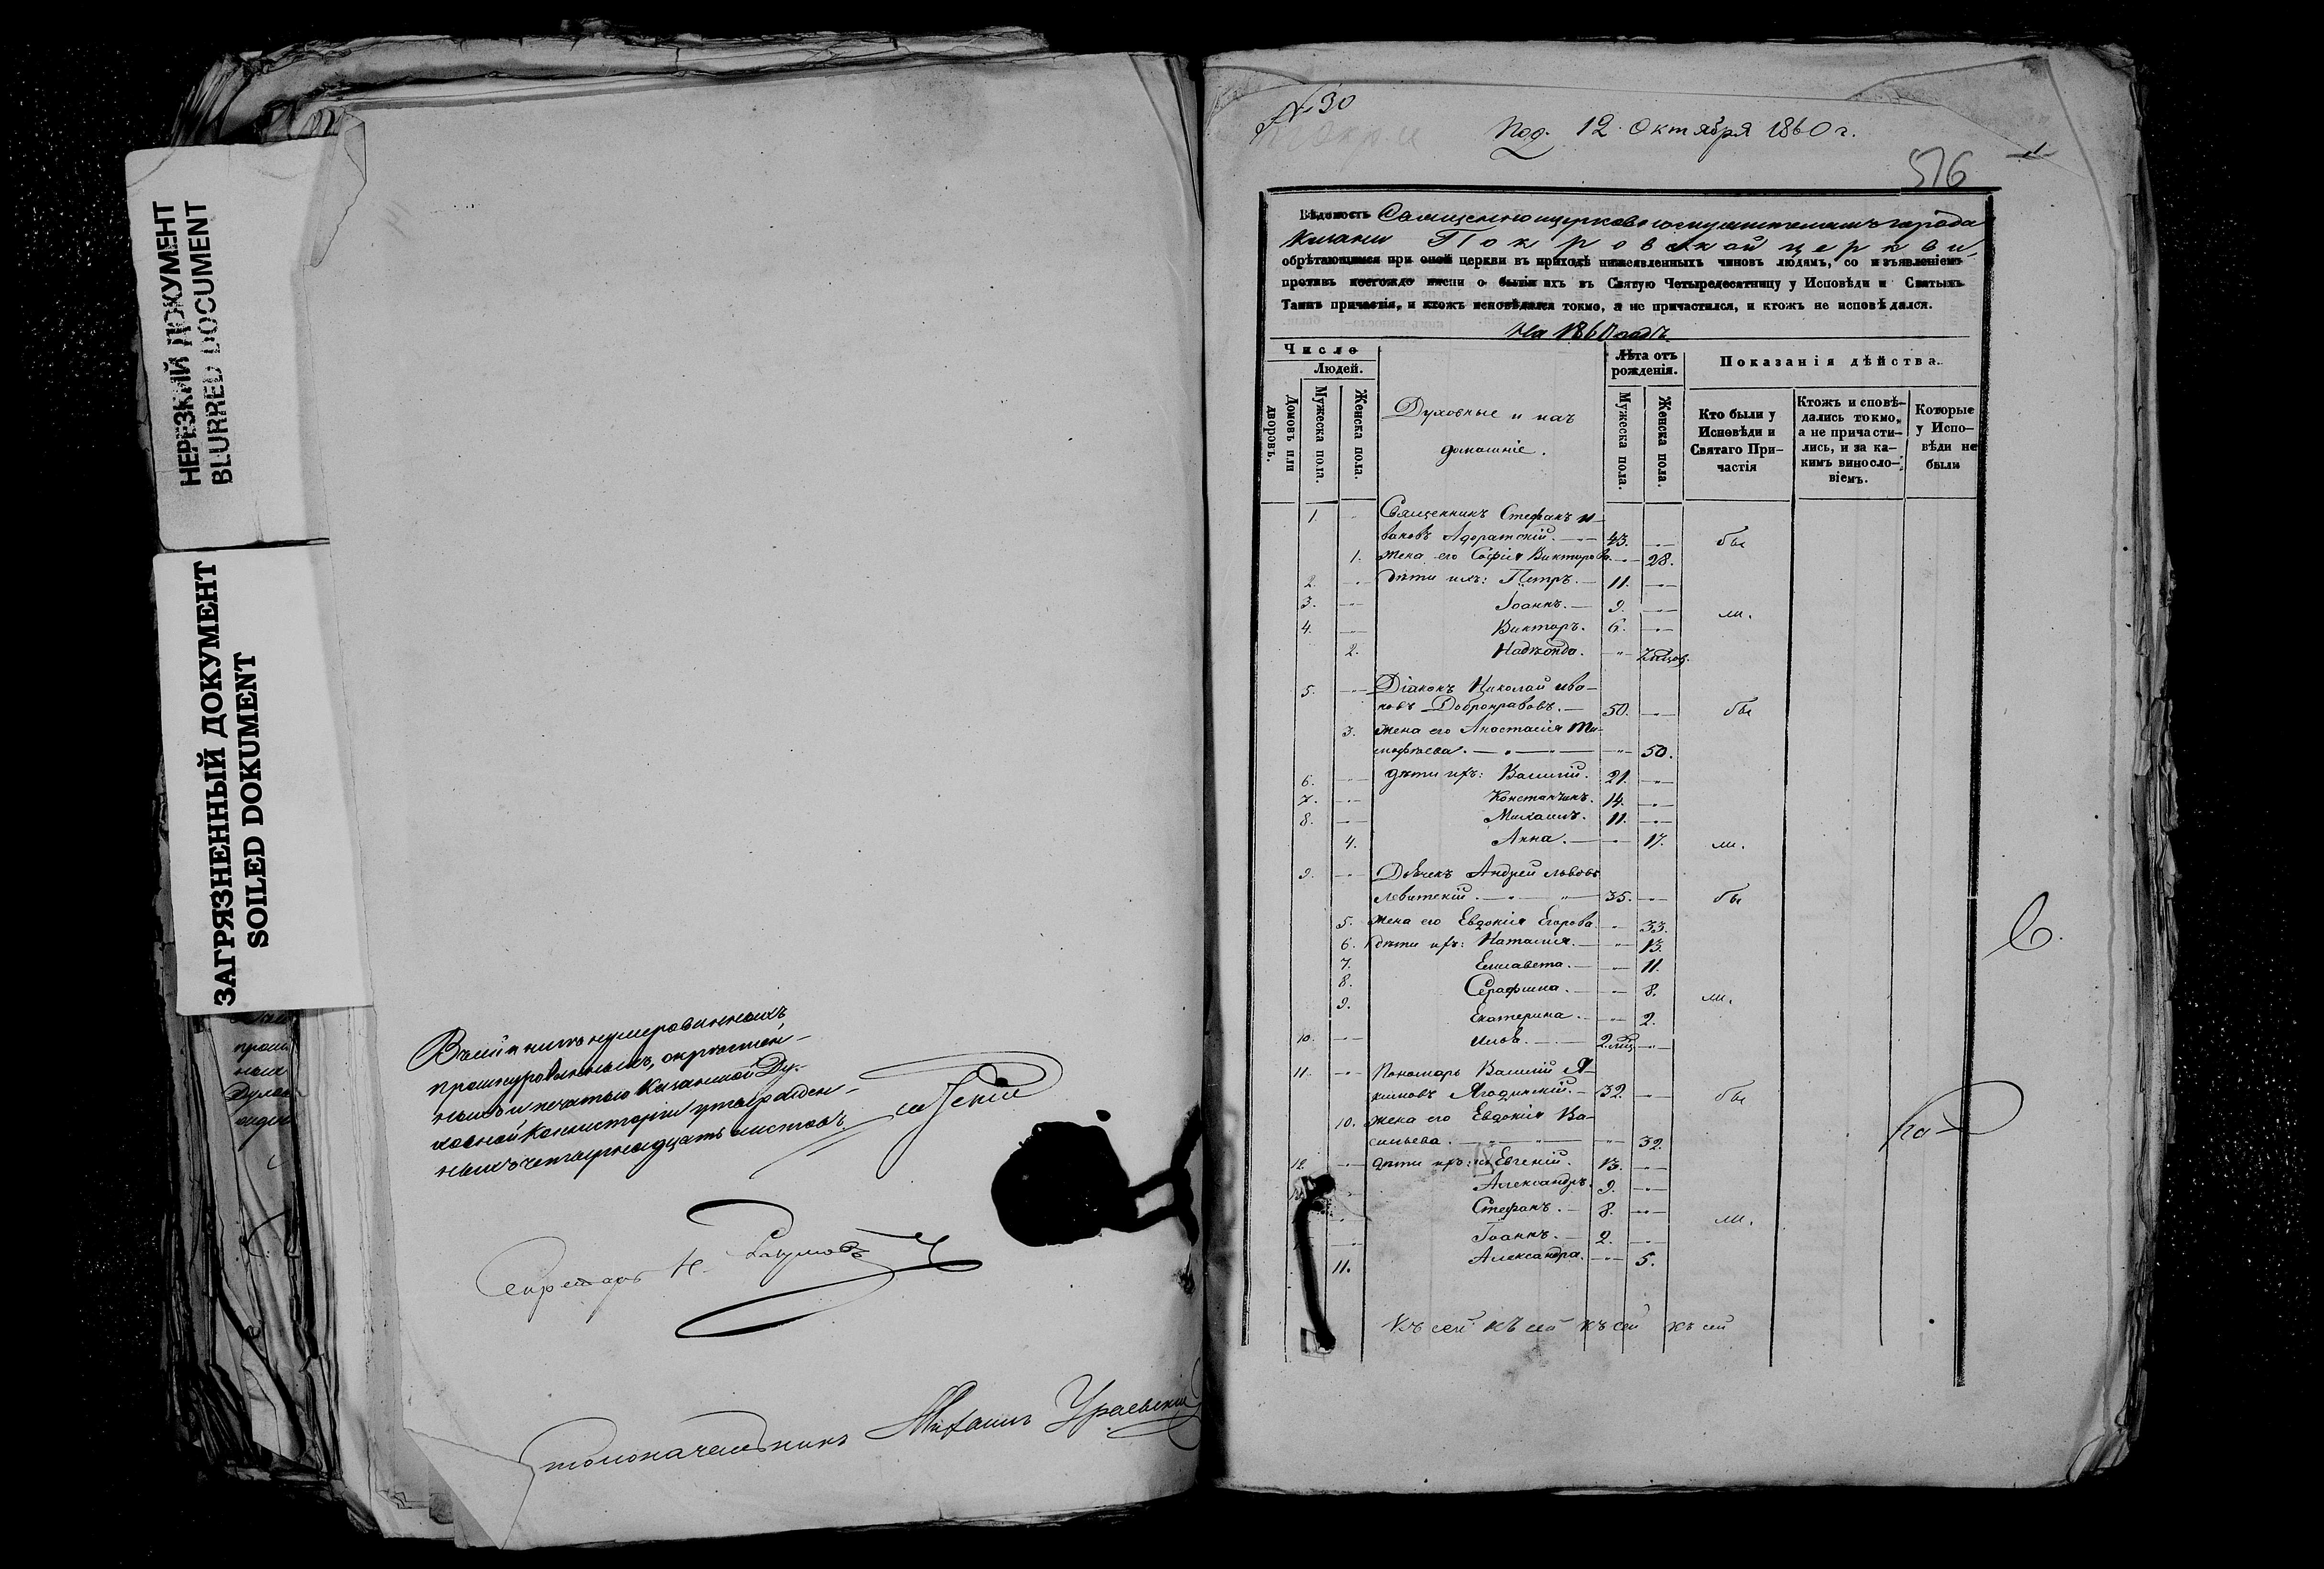 НЕРЕЗКИЙ ДОКУМЕНТ
BLURRED DOCUMENT
ЗАГРЯЗНЕННЫЙ ДОКУМЕНТ
SOILED DOKUMENT
нумерованныхъ
прошнурованныхъ, скрѣплен-
ныхъ и печатью Казанской Ду-
ховной Консисторіи утвержден-
ныхъ четырнадцать листовъ.
Секретарь Н. Разумовъ
Столоначальникъ Михаилъ Ураевскій
№ 30
Под. 12 Октября 1860 г.
516
Вѣдомость Священноцерковнослужителямъ города
Казани Покровской церкви,
обрѣтающимся при оной церкви въ приходѣ нижеявленныхъ чиновъ людямъ, со изъявленіемъ
противъ коегождо имени о бытіи ихъ въ Святую Четыредесятницу у Исповѣди и Святыхъ
Таинъ причастія, и ктожъ исповѣдался токмо, а не причастился, и ктожъ не исповѣдался.
На 1860 годъ.
Число
Людей.
Домовъ или дворовъ.
Мужеска пола.
Женска пола.
Духовные и ихъ
домашніе.
Лѣта отъ рожденія.
Мужеска пола.
Женска пола.
Показанія дѣйства.
Кто были у Исповѣди и Святаго Причастія
Ктожъ исповѣ-
дались токмо,
а не причасти-
лись, и за ка-
кимъ винословіемъ.
Которые
у Испо-
вѣди не
были
1. Священникъ Стефанъ И-
вановъ Адоратскій. 43. бы
1. Жена его Софія Викторова. 28.
2. дѣти ихъ: Петръ. 11.
3. Іоаннъ. 9. ли.
4. Викторъ. 6.
2. Надежда.
5. Діаконъ Николай Ива-
новъ Добронравовъ. 50. бы
3. Жена его Анастасія Ти-
мофѣева. 50.
6. дѣти ихъ: Василій. 21.
7. Константинъ. 14.
8. Михаилъ. 11.
4. Анна. 17. ли.
9. Дьячекъ Андрей Львовъ
Левитскій. 35. бы
5. Жена его Евдокія Егорова 33.
6. дѣти ихъ: Наталія. 13.
7. Елисавета. 11.
8. Серафима. 8. ли.
9. Екатерина. 2.
10. 2
11. Пономарь Василій Я-
кимовъ Ягодинскій. 32. бы
10. Жена его Евдокія Ва-
сильева. 32.
12. дѣти ихъ: Евгеній. 13.
Александръ. 9.
Стефанъ. 8. ли.
Іоаннъ. 2.
11. Александра. 5.
Къ сей къ сей къ сей къ сей